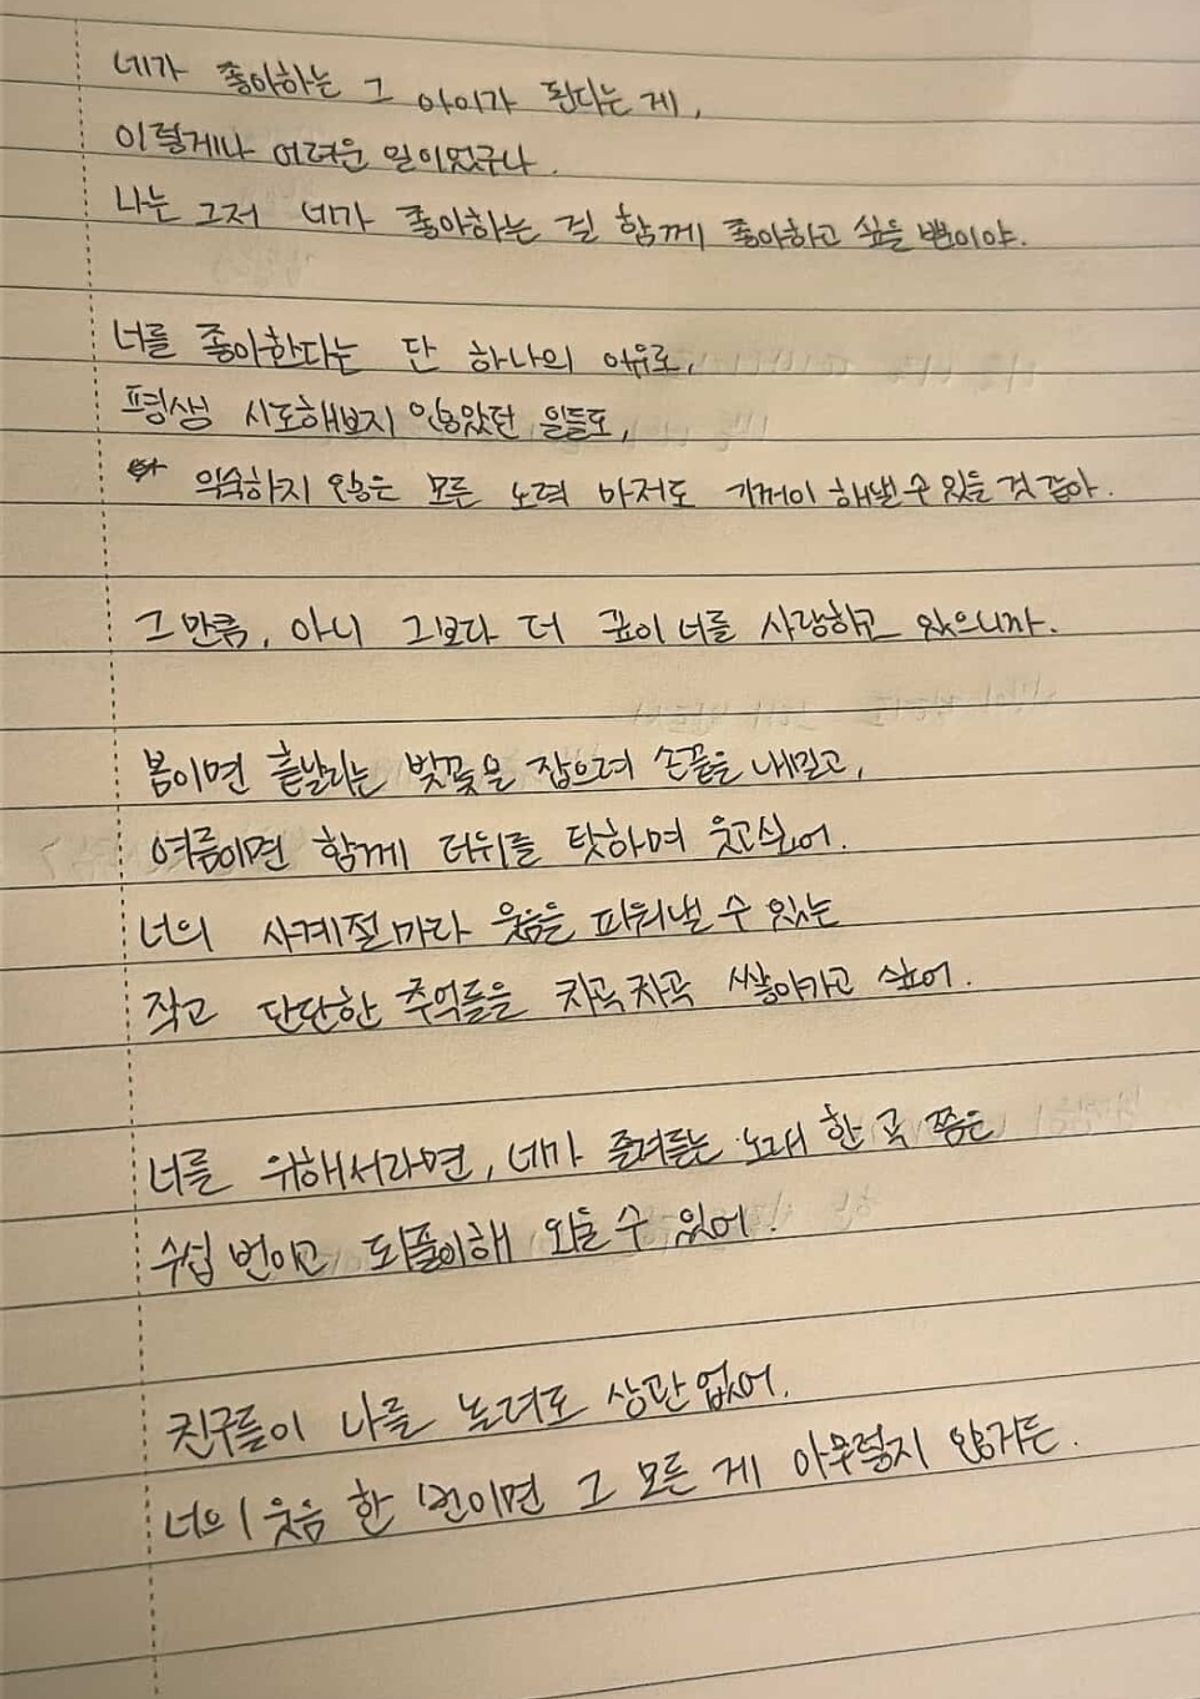 네가 좋아하는 그 아이가 된다는 게,
이렇게나 어려운 일이었구나.
나는 그저 네가 좋아하는 걸 함께 좋아하고 싶을 뿐이야.
너를 좋아한다는 단 하나의 이유로,
평생 시도해보지 않았던 일들도,
익숙하지 않은 모든 노력 마저도 기꺼이 해낼 수 있을 것 같아.
그만큼, 아니 그보다 더 깊이 너를 사랑하고 있으니까.
봄이면 흩날리는 벚꽃을 잡으려 손끝을 내밀고,
여름이면 함께 더위를 탓하며 웃고싶어.
너의 사계절마다 웃음을 피워낼 수 있는
작고 단단한 추억들을 차곡차곡 쌓아가고 싶어.
너를 위해서라면, 네가 즐겨듣는 노래 한 곡 쯤은
수십 번이고 되풀이해 외울 수 있어.
친구들이 나를 놀려도 상관없어.
너의 웃음 한 번이면 그 모든 게 아무렇지 않거든.